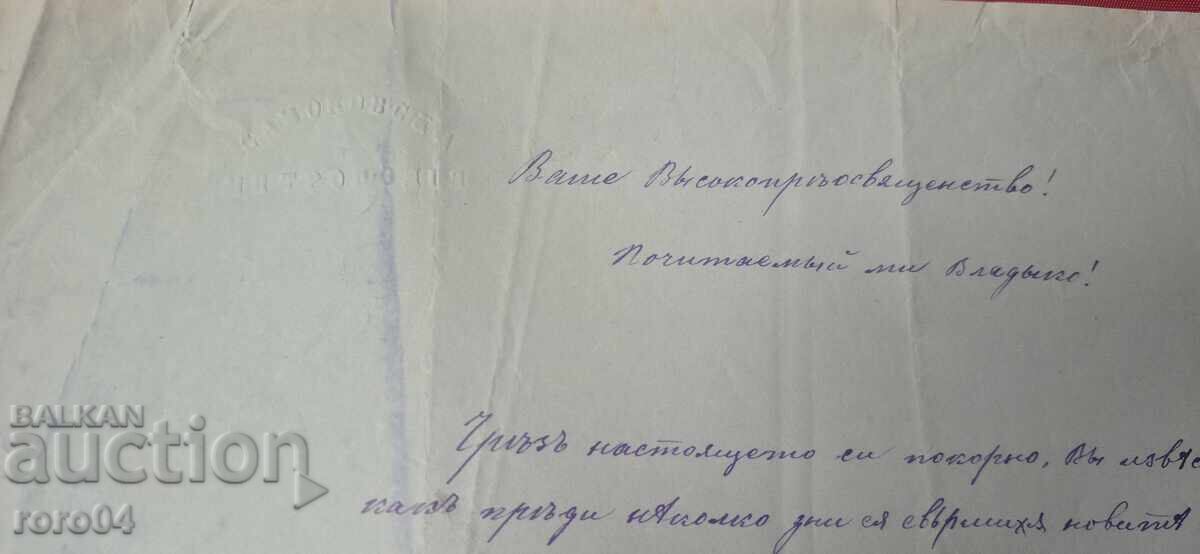 Ваше Высокопрѣосвященство!
Почитаемый ми Владыко!
Чрѣзъ настоящето си покорно, Вы извѣс
какъ прѣди нѣколко дни ся свършихѫ новитѣ
BALKAN
auction
roro04